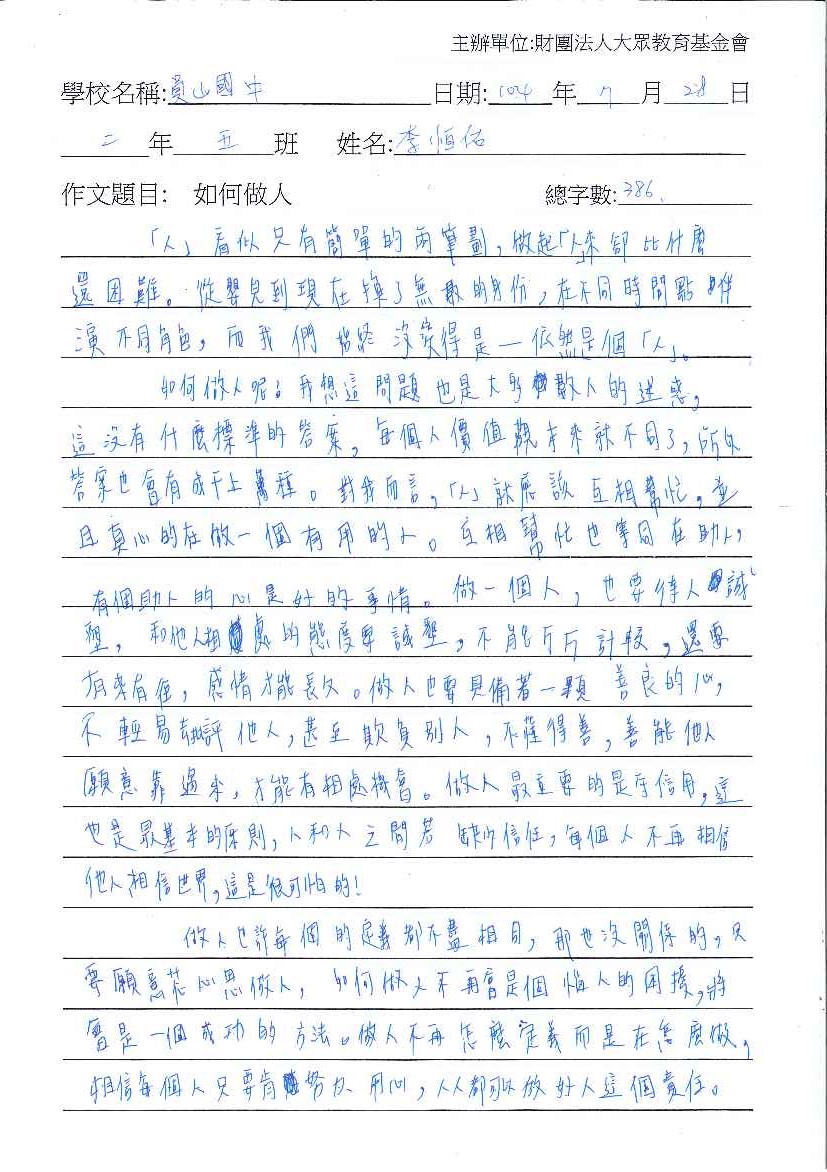 主辦單位:財團法人大眾教育基金會
學校名稱:員山國中 日期:104年7月28日
二年五班 姓名:李恒佑
作文題目: 如何做人 總字數:386.
「人」看似只有簡單的兩筆劃,做起「人」來卻比什麼
還困難。從嬰兒到現在換了無數的身份,在不同時間點
演不同角色,而我們始終沒變得是—依然是個「人」。
如何做人呢?我想這問題也是大多數人的迷惑,
這沒有什麼標準的答案,每個人價值觀本來就不同了,所以
答案也會有成千上萬種。對我而言,「人」就應該互相幫忙,並
且真心的在做一個有用的人。互相幫忙也等同在助人,
有個助人的心是好的事情。做一個人,也要待人誠
懇,和他人相處的態度要誠懇,不能斤斤計較,還要
有來有往,感情才能長久。做人也要具備著一顆善良的心,
不輕易去批評他人,甚至欺負別人,不懂得善,善能他人
願意靠過來,才能有相處機會。做人最重要的是守信用,這
也是最基本的原則,人和人之間若缺少信任,每個人不再相信
他人相信世界,這是很可怕的!
做人也許每個的定義都不盡相同,那也沒關係的,只
要願意花心思做人,如何做人不再會是個惱人的困擾,將
會是一個成功的方法。做人不再怎麼定義而是在怎麼做,
相信每個人只要肯努力、用心,人人都可以做好人這個責任。